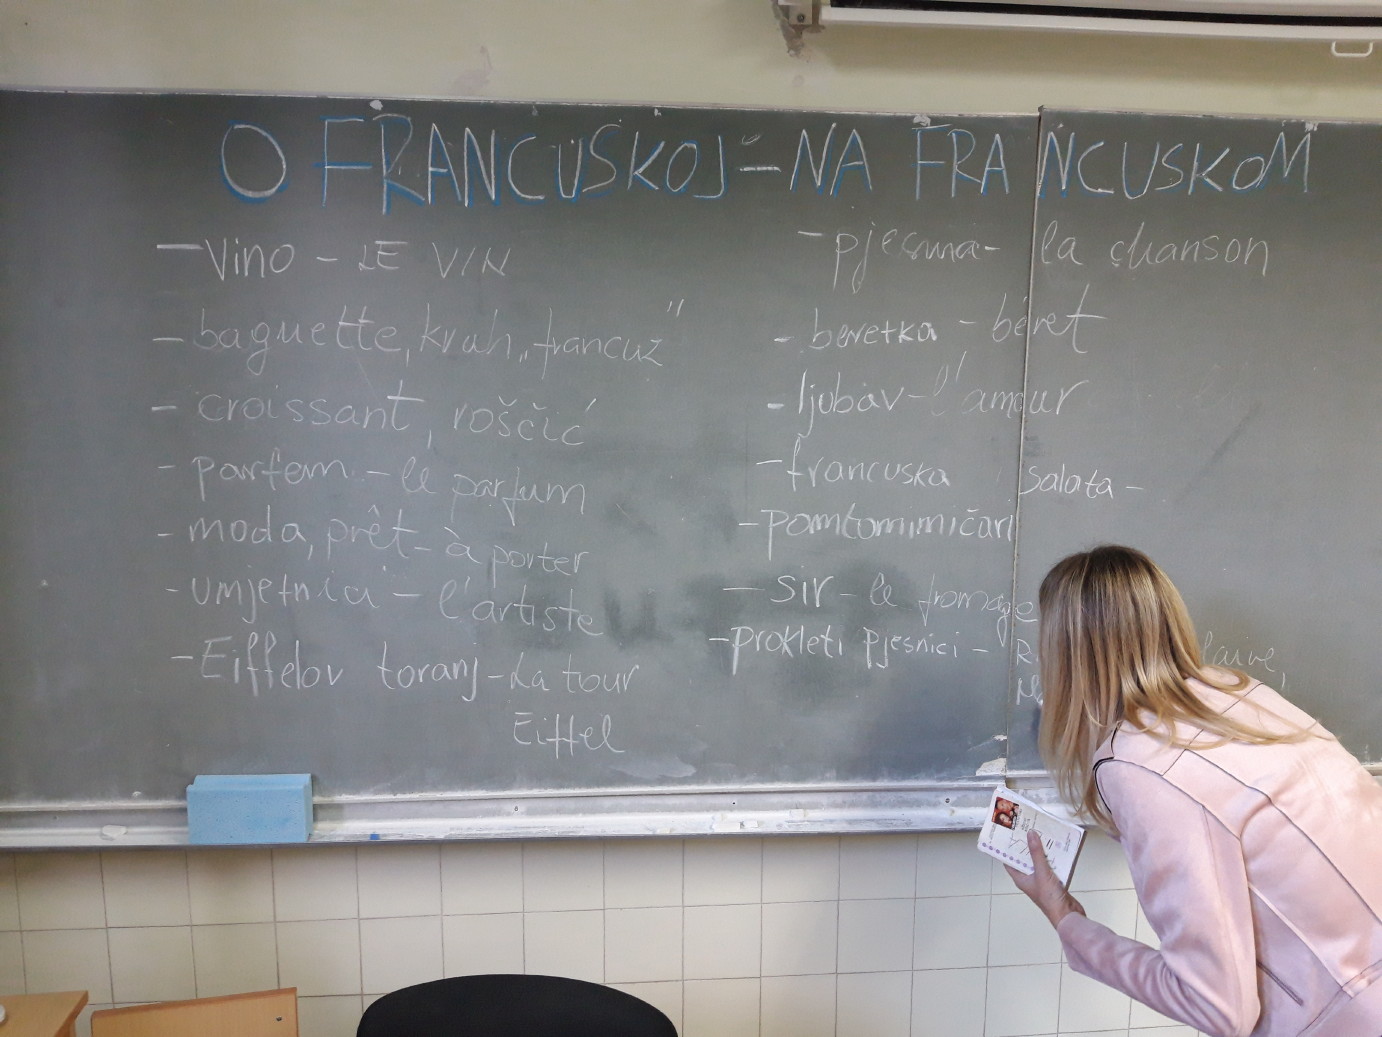 O FRANCUSKOJ - NA FRANCUSKOM
- Vino - LE VIN
- baguette, kruh „francuz"
- croissant, roščić
- parfem - le parfum
- moda, prêt-à porter
- umjetnici - l'artiste
- Eiffelov toranj - La tour
Eiffel
- pjesma - la chanson
- beretka - béret
- ljubav - l'amour
- francuska salata -
- pomtomimičari
- sir - le fromage
- prokleti pjesnici -